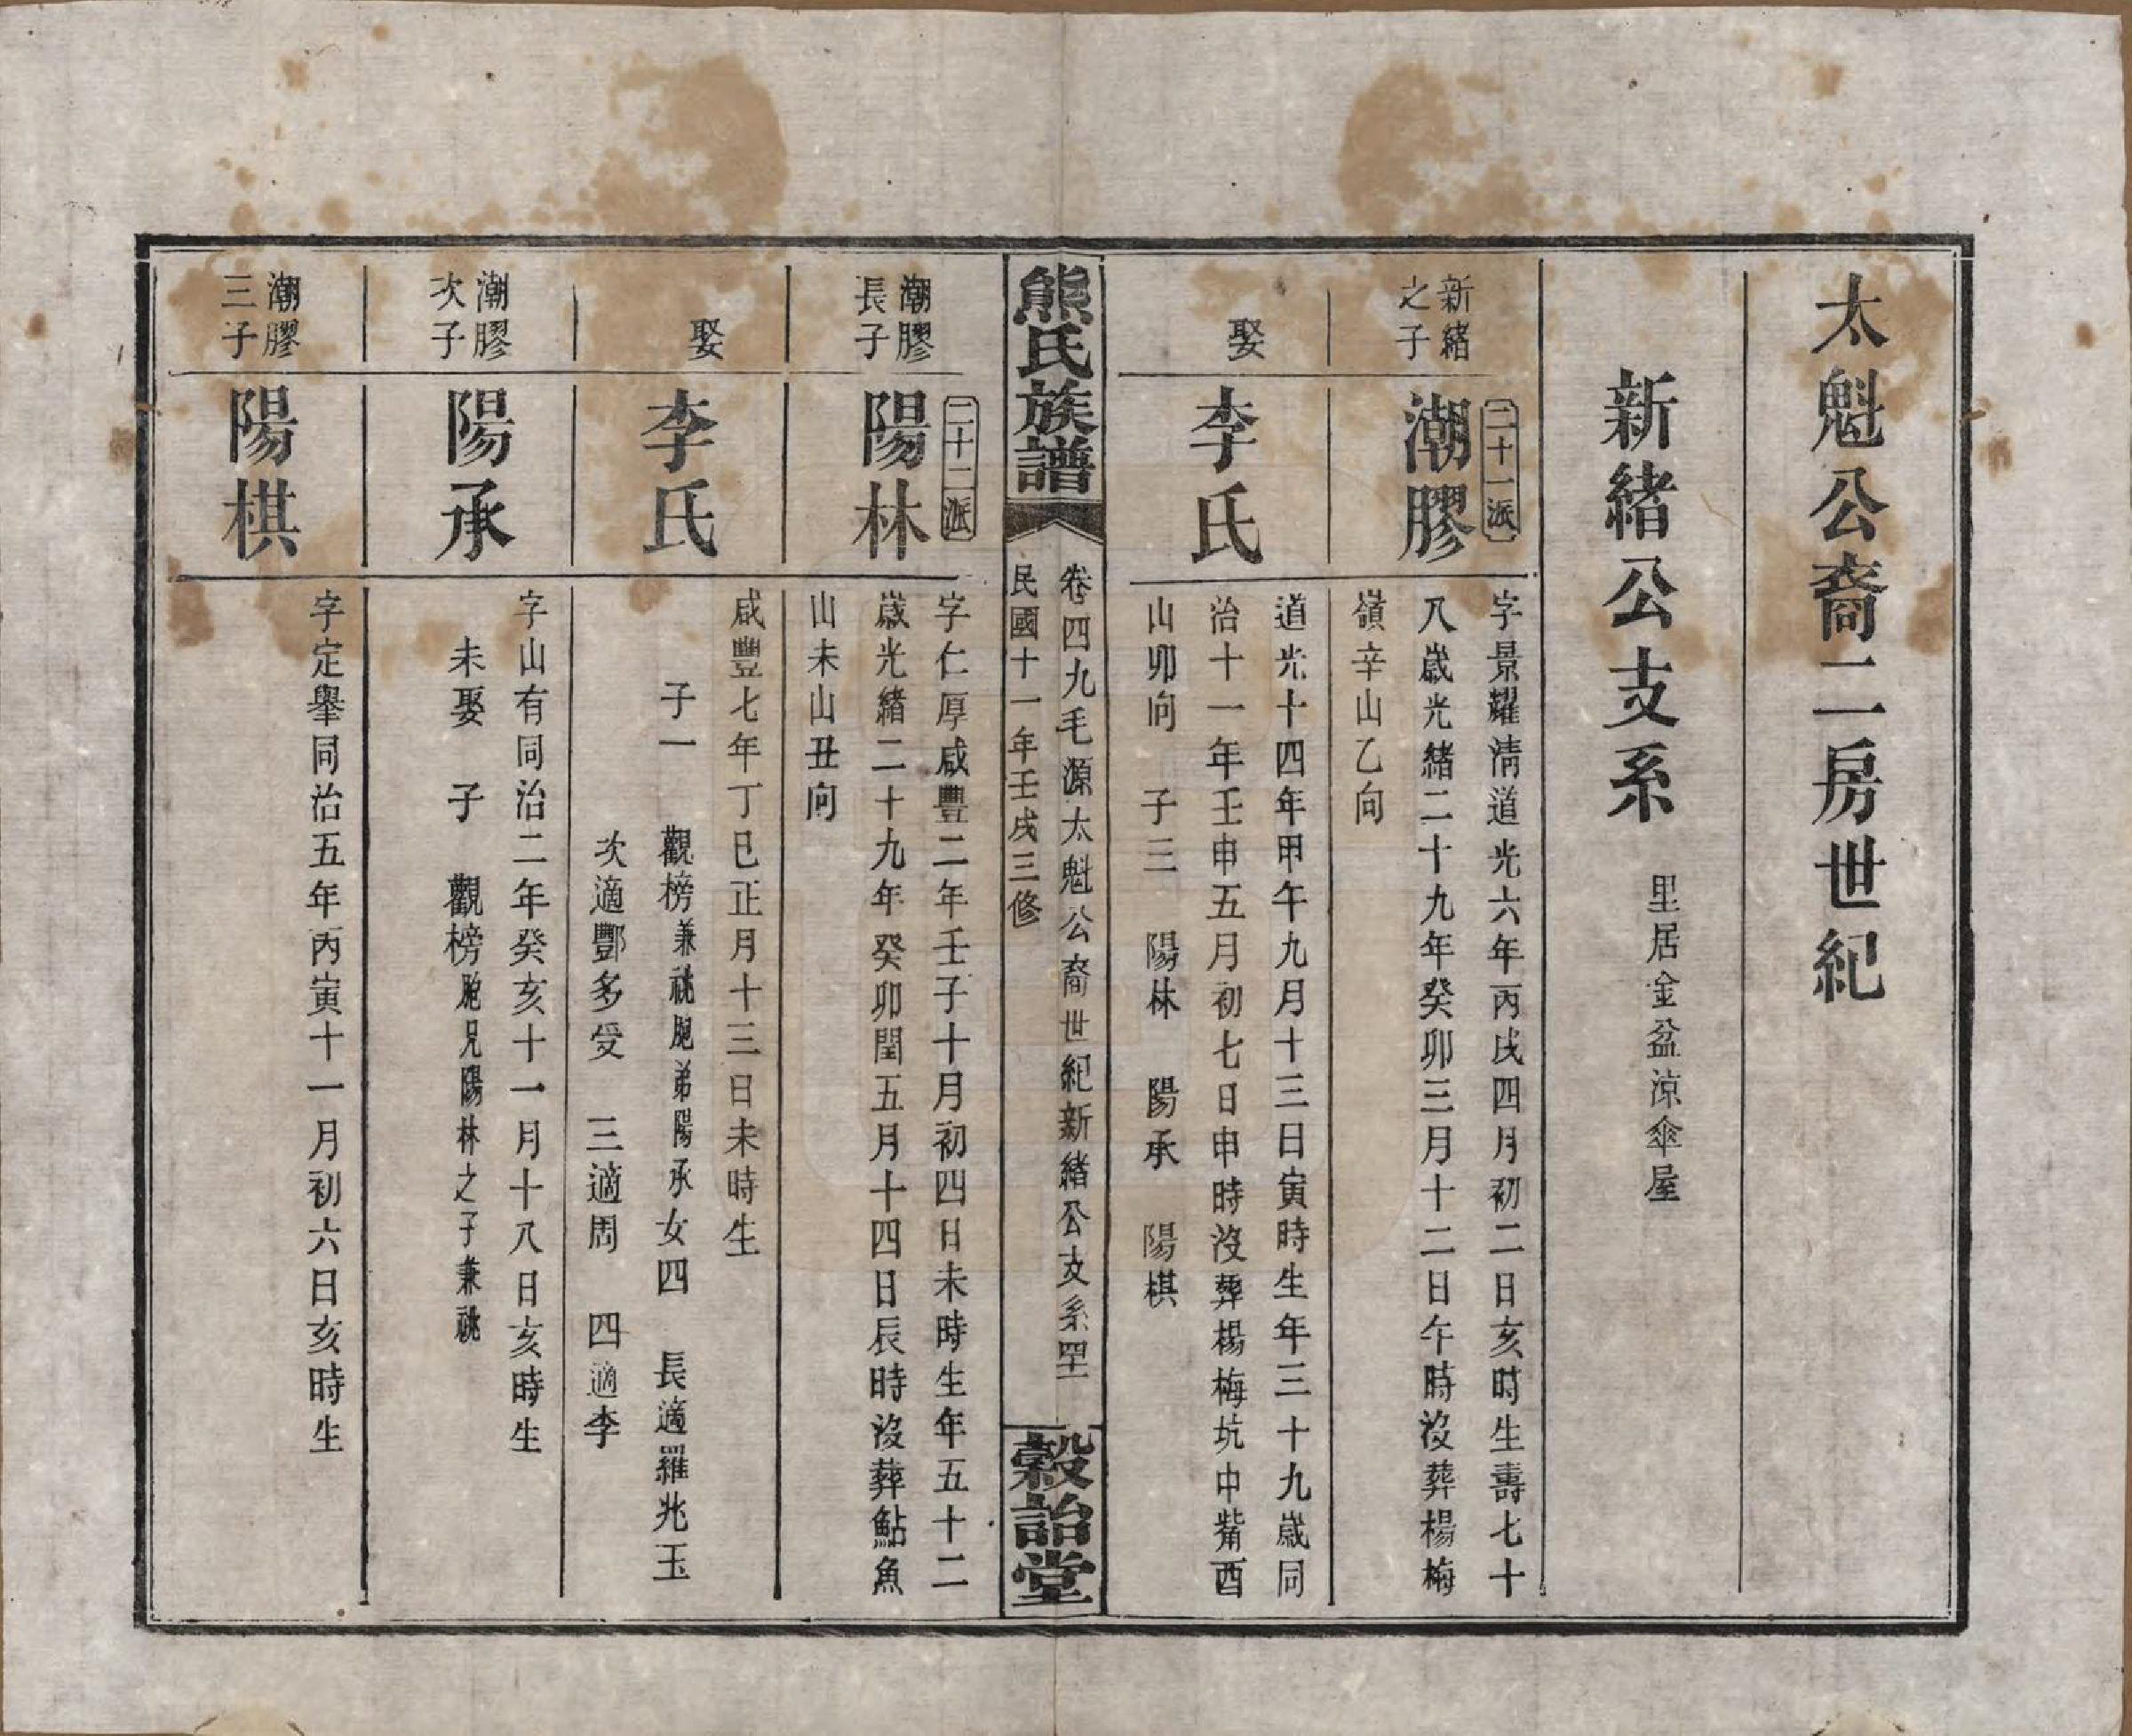 太魁公裔二房世紀
新緒公支系
里居金盆涼傘屋
新緒
之子
二十一派
潮膠
字景耀清道光六年丙戌四月初二日亥時生壽七十
八歲光緒二十九年癸卯三月十二日午時沒葬楊梅
嶺辛山乙向
娶
李氏
道光十四年甲午九月十三日寅時生年三十九歲同
治十一年壬申五月初七日申時沒葬楊梅坑中觜酉
山卯向 子三 陽林 陽承 陽棋
熊氏族譜
卷四九毛源太魁公裔世紀新緒公支系四十
民國十一年壬戌三修
穀詒堂
潮膠
長子
二十二派
陽林
字仁厚咸豐二年壬子十月初四日未時生年五十二
歲光緒二十九年癸卯閏五月十四日辰時沒葬鮎魚
山未山丑向
娶
李氏
咸豐七年丁巳正月十三日未時生
子一 觀榜兼祧胞弟陽承女四 長適羅兆玉
次適酆多受 三適周 四適李
潮膠
次子
陽承
字山有同治二年癸亥十一月十八日亥時生
未娶 子 觀榜胞兄陽林之子兼祧
潮膠
三子
陽棋
字定舉同治五年丙寅十一月初六日亥時生